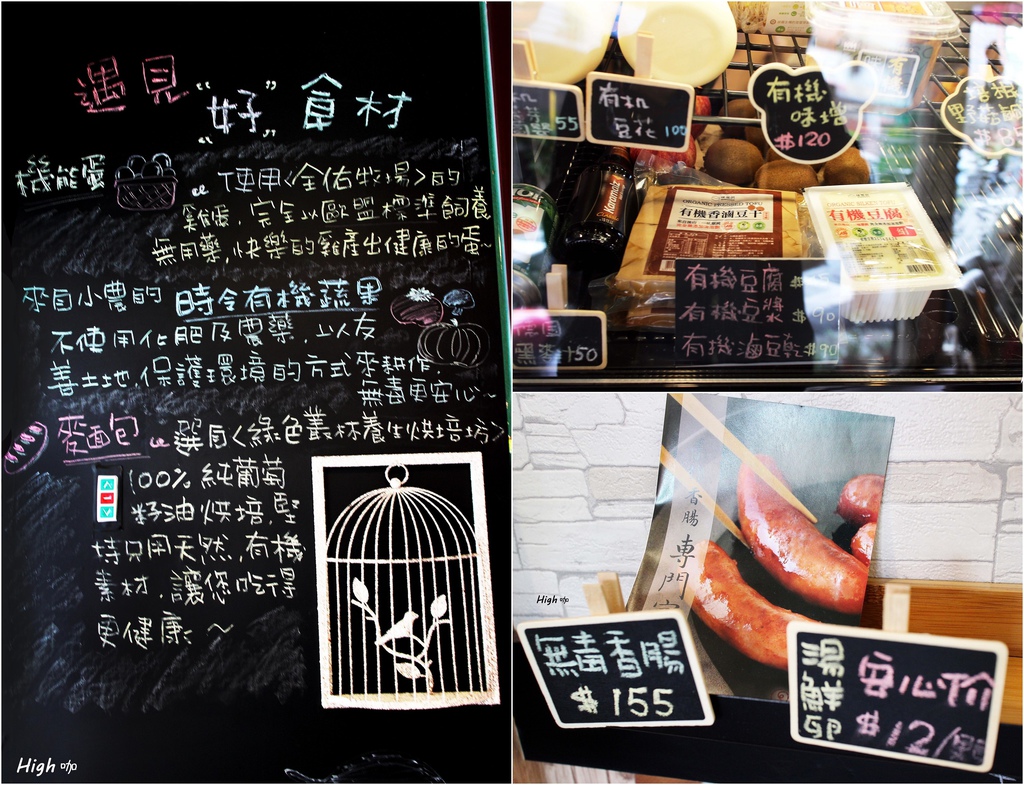 遇見
“好” 食材
機能蛋
使用<全佑牧場>的
雞蛋,完全以歐盟標準飼養
無用藥,快樂的雞產出健康的蛋~
來自小農的 時令有機蔬果
不使用化肥及農藥,以友
善土地,保護環境的方式來耕作,
無毒更安心~
麥面包 選自<綠色叢林養生烘培坊>
100%純葡萄
籽油烘培,堅
持只用天然,有機
素材,讓您吃得
更健康~
High 咖
55
有机
豆花 100
有機
味增
$120
野
$85
ORGANIC TOFU
有機香滷豆干
有機豆腐
有機豆腐
有機豆漿 $90
有機滷豆乾 $90
50
香腸
專門
High 咖
無毒香腸
$155
湯鮮卵
安心价
$12/顆